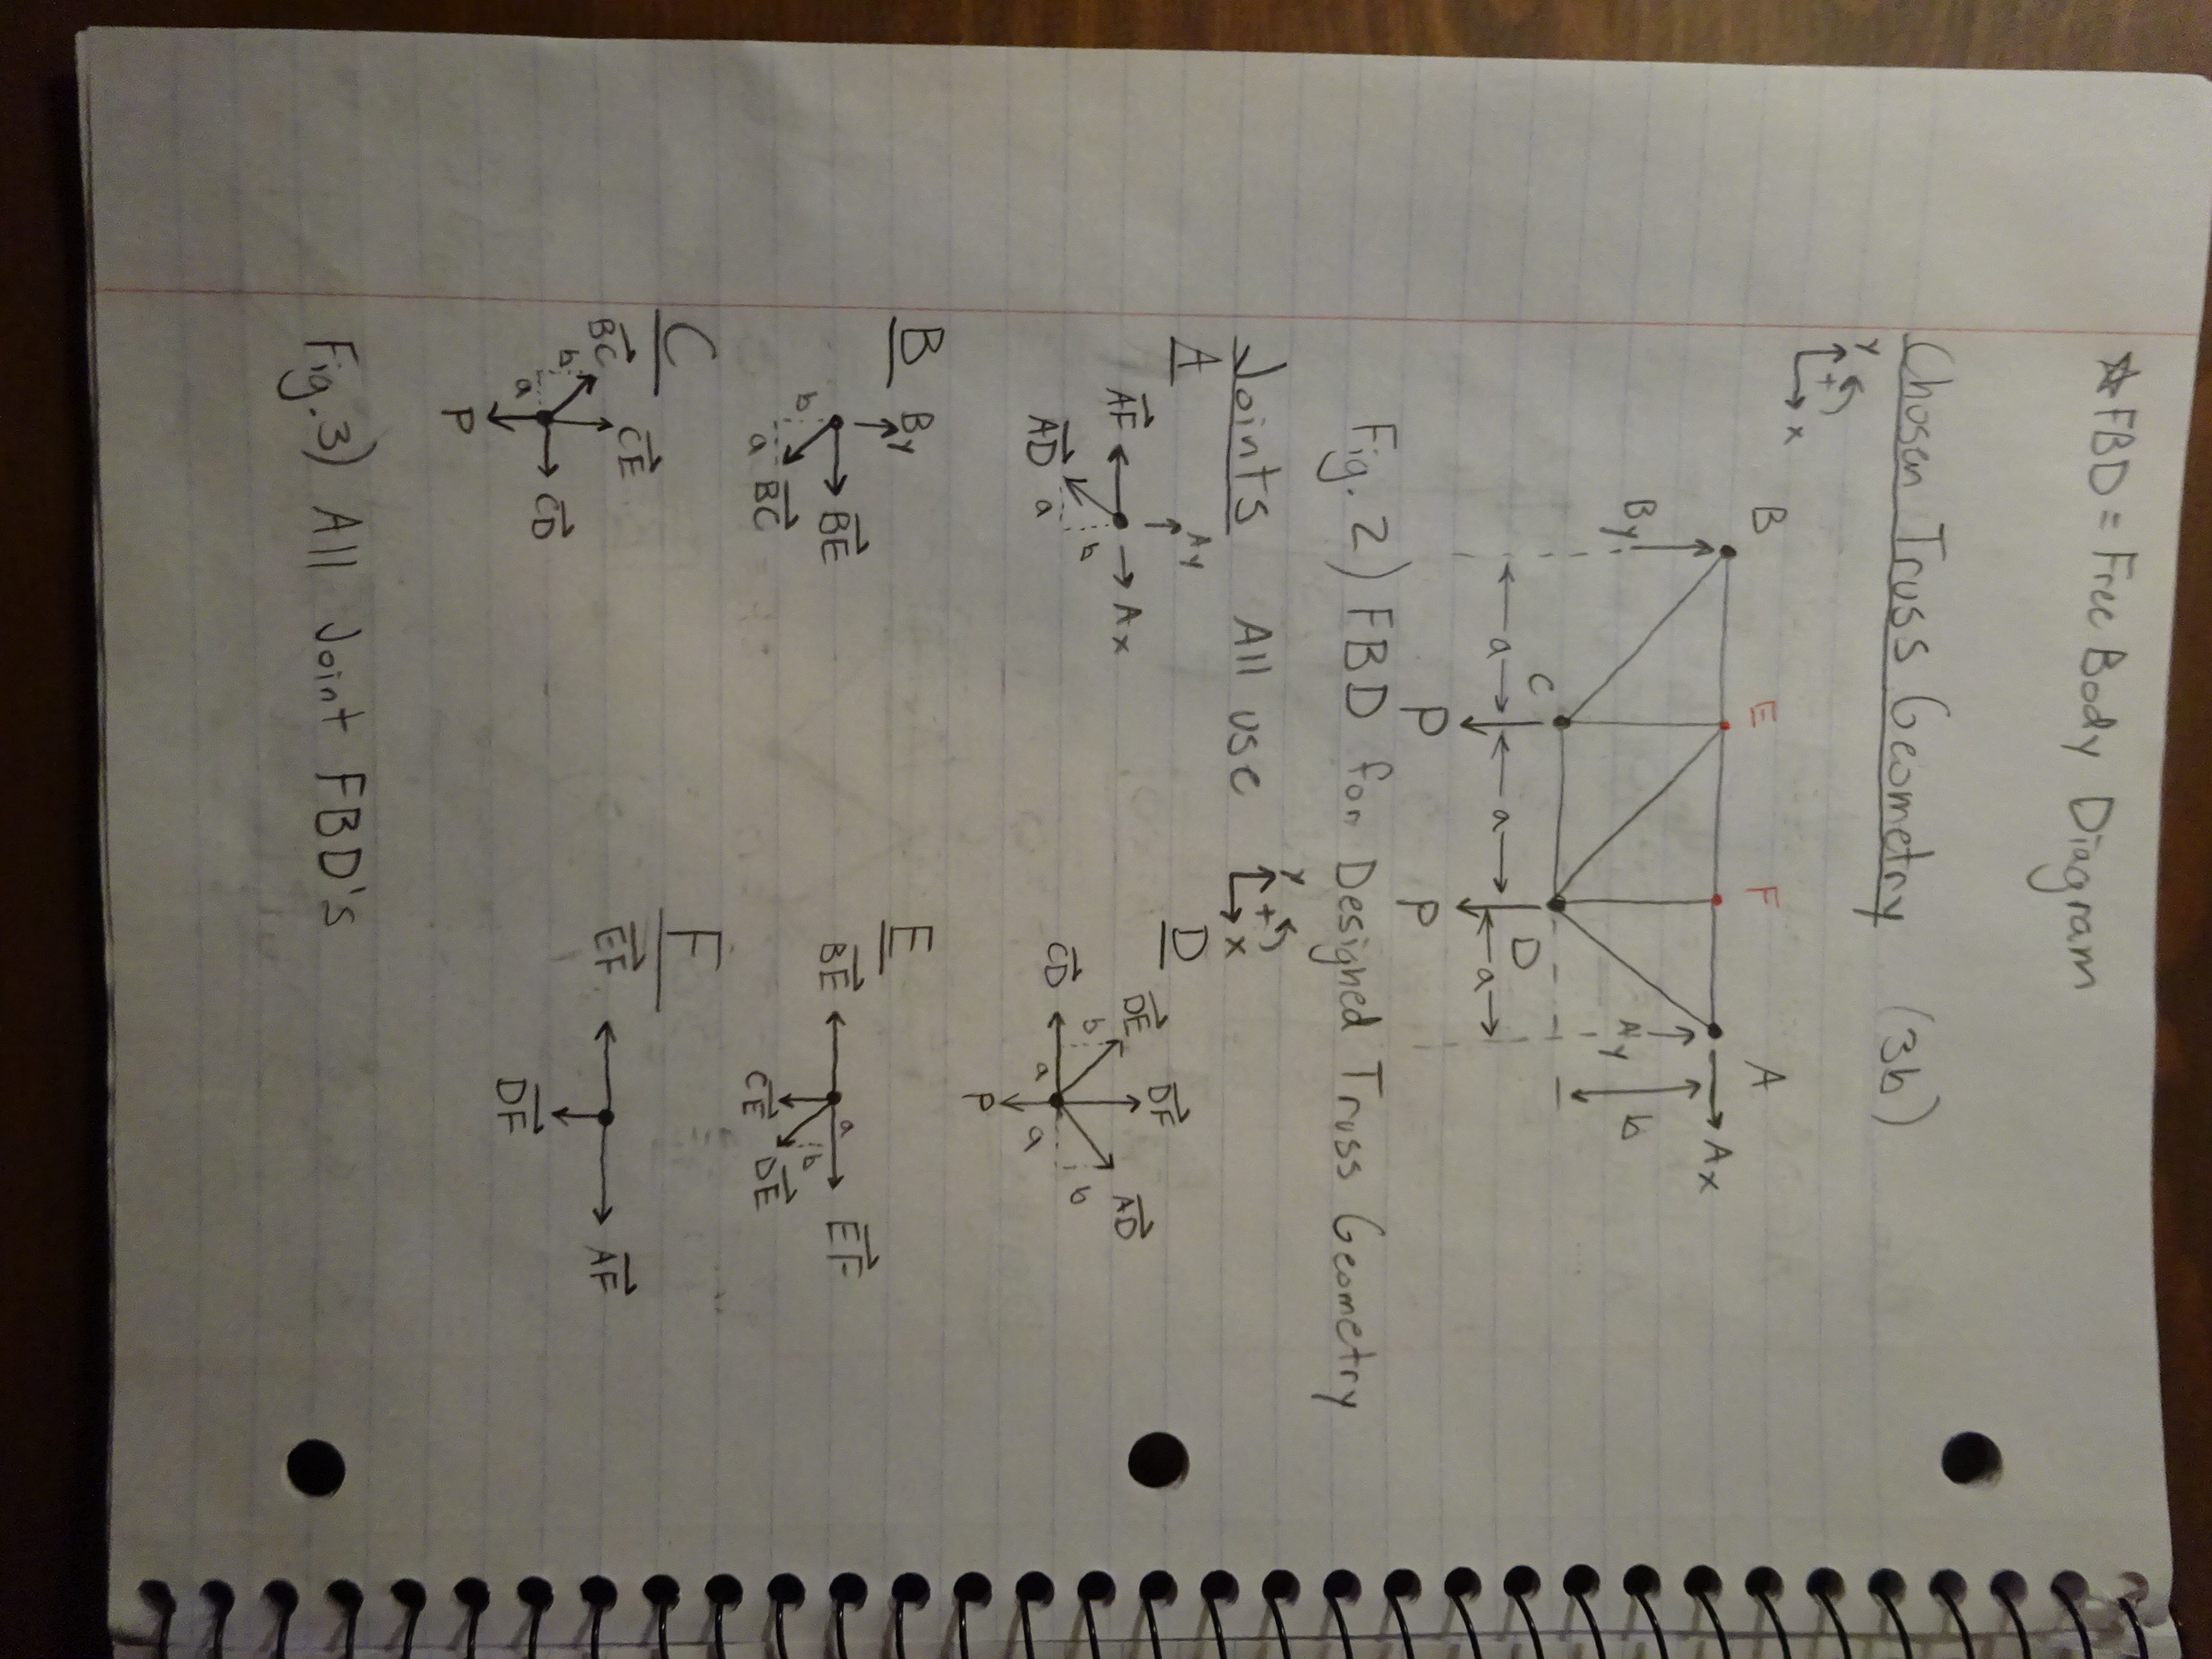 ☆ FBD = Free Body Diagram
Chosen Truss Geometry (3b)
y + x
B E F A
Ax
By Ay b
C D
a a a
P P
Fig. 2) FBD for Designed Truss Geometry
Joints All use y + x
A
Ay
AF Ax
b
AD a
B
By
BE
b
a BC
C
CE
BC b
a CD
P
D
DE DF AD
b b
CD a a
P
E
BE a EF
b
CE DE
F
EF AF
DF
Fig. 3) All Joint FBD's